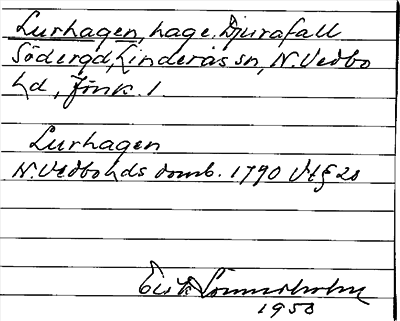 Lurhagen, hage, Djurafall
Södergd, Linderås sn, N. Vedbo
hd, Jönk. l
Lurhagen
N. Vedbo hds domb. 1790 Vt § 20
1950